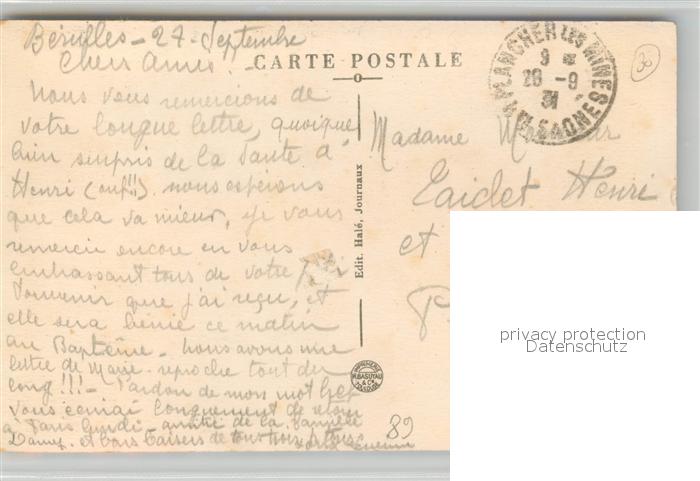 Bérulles - 27 - Septembre
Chers Amis!!
Nous vous remercions de
votre longue lettre, quoique
bien surpris de la santé à
Henri (ouf!!) nous espérons
que cela va mieux, je vous
remercie encore en vous
embrassant tous de votre
souvenir que j'ai reçu, et
elle sera bénie ce matin
au Baptême - nous avons une
lettre de Marie. reproche tout du
long!!! - Pardon de mon mot bref
vous longuement de retour
à Paris lundi - amitié de la famille
et bons baisers de tous
CARTE POSTALE
Edit. Halé, Journaux
PLANCHER LES MINES
9
28 - 9
31
Hte SAONE
30
Madame Monsieur
Henri
et
89
privacy protection
Datenschutz